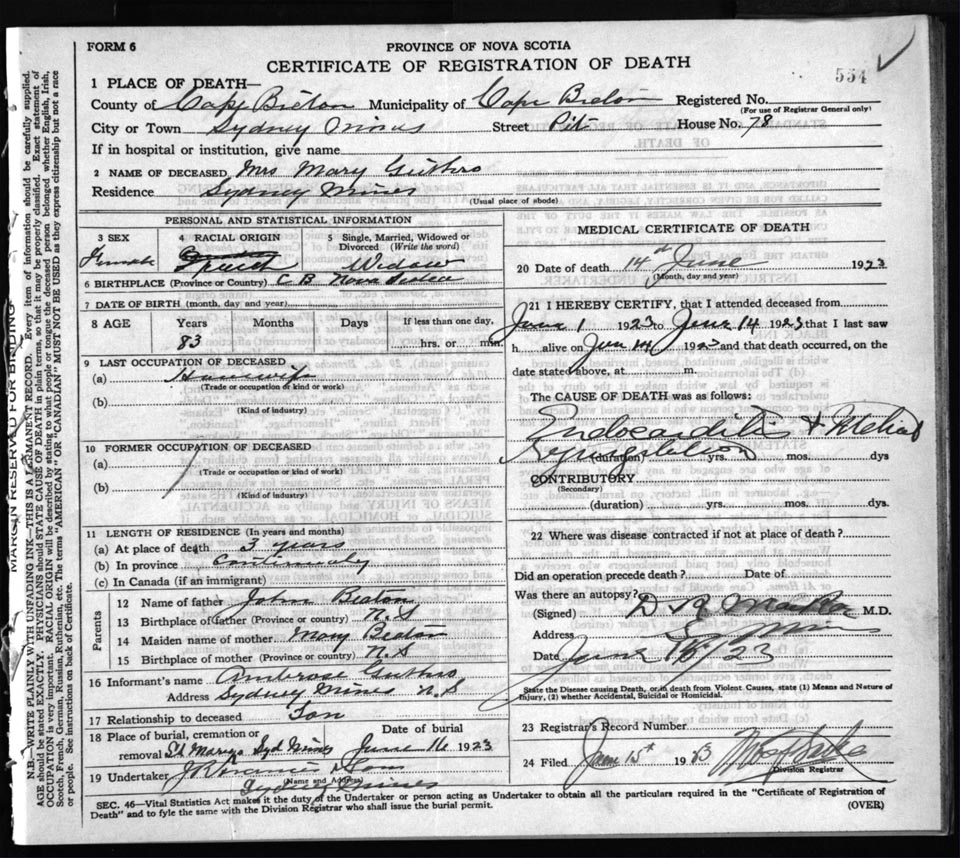 FORM 6
PROVINCE OF NOVA SCOTIA
CERTIFICATE OF REGISTRATION OF DEATH
554
1 PLACE OF DEATH—
County of Cape Breton Municipality of Cape Breton Registered No.
(For use of Registrar General only)
City or Town Sydney Mines Street Pit House No. 78
If in hospital or institution, give name
2 NAME OF DECEASED Mrs Mary Guthro
Residence Sydney Mines
(Usual place of abode)
PERSONAL AND STATISTICAL INFORMATION
3 SEX 4 RACIAL ORIGIN 5 Single, Married, Widowed or Divorced (Write the word)
Female Widow
6 BIRTHPLACE (Province or Country) C B Nova Scotia
7 DATE OF BIRTH (month, day and year)
8 AGE Years Months Days If less than one day,
83 hrs. or min.
9 LAST OCCUPATION OF DECEASED
(a) Housewife
(Trade or occupation or kind or work)
(b)
(Kind of industry)
10 FORMER OCCUPATION OF DECEASED
(a)
(Trade or occupation or kind or work)
(b)
(Kind of industry)
11 LENGTH OF RESIDENCE (In years and months)
(a) At place of death 3 years
(b) In province Continually
(c) In Canada (if an immigrant)
Parents
12 Name of father John Beaton
13 Birthplace of father (Province or country) N.S
14 Maiden name of mother Mary Beaton
15 Birthplace of mother (Province or country) N S
16 Informant's name Ambrose Guthro
Address Sydney Mines N.S
17 Relationship to deceased Son
18 Place of burial, cremation or removal Date of burial
St Marys Syd Mines June 16 1923
19 Undertaker & Sons
(Name and Address)
Sydney Mines
MEDICAL CERTIFICATE OF DEATH
20 Date of death 14th June 1923
(Month, day and year)
21 I HEREBY CERTIFY, that I attended deceased from
June 1 1923 to June 14 1923 that I last saw
h alive on June 14 1923 and that death occurred, on the
date stated above, at m.
The CAUSE OF DEATH was as follows:
Endocarditis & Mitral
Regurgitation
(duration) yrs. mos. dys.
CONTRIBUTORY
(Secondary)
(duration) yrs. mos. dys.
22 Where was disease contracted if not at place of death?
Did an operation precede death? Date of
Was there an autopsy?
(Signed) M.D.
Address
Date June 23
State the Disease causing Death, or, in death from Violent Causes, state (1) Means and Nature of Injury, (2) whether Accidental, Suicidal or Homicidal.
23 Registrar's Record Number
24 Filed June 15th 19
Division Registrar
SEC. 46—Vital Statistics Act makes it the duty of the Undertaker or person acting as Undertaker to obtain all the particulars required in the "Certificate of Registration of
Death" and to fyle the same with the Division Registrar who shall issue the burial permit.
(OVER)
MARGIN RESERVED FOR BINDING
N.B.—WRITE PLAINLY WITH UNFADING INK—THIS IS A PERMANENT RECORD. Every item of information should be carefully supplied.
AGE should be stated EXACTLY. PHYSICIANS should STATE CAUSE OF DEATH in plain terms, so that it may be properly classified. Exact statement of
OCCUPATION is very important. RACIAL ORIGIN will be described by stating to what people or tongue the deceased person belonged whether English, Irish,
Scotch, French, German, Russian, Ruthenian, etc. The terms "AMERICAN" OR "CANADIAN" MUST NOT BE USED as they express citizenship but not a race
or people. See instructions on back of Certificate.